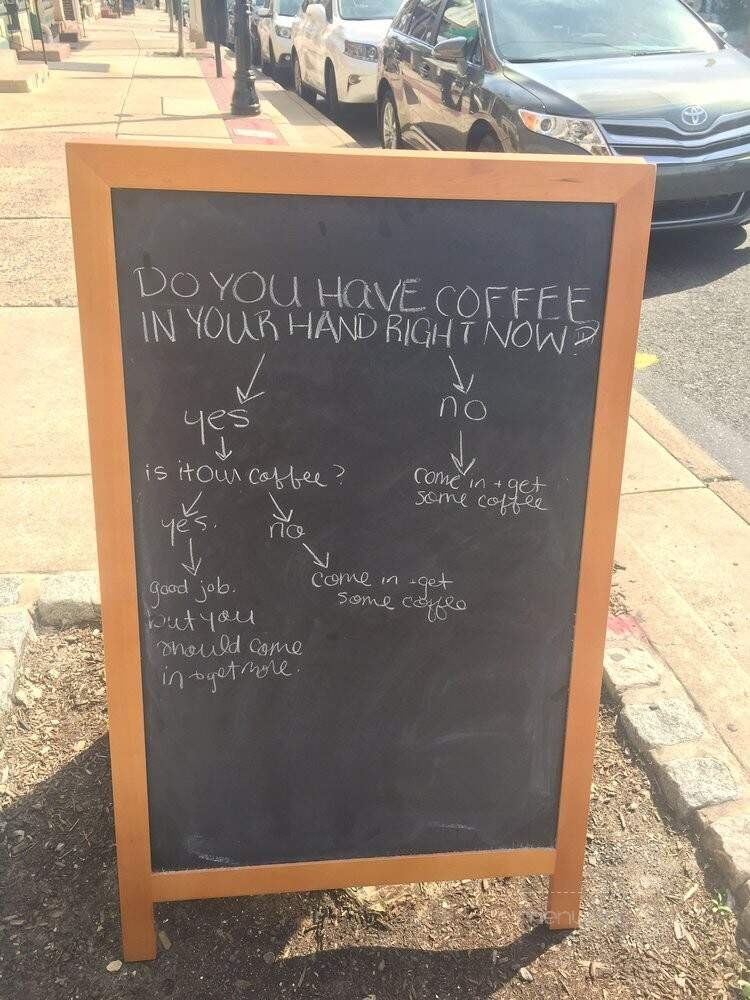 DO YOU HAVE COFFEE
IN YOUR HAND RIGHT NOW?
yes
no
is it our coffee?
come in + get
some coffee
yes.
no
good job.
but you
should come
in + get more.
come in + get
some coffee
menu